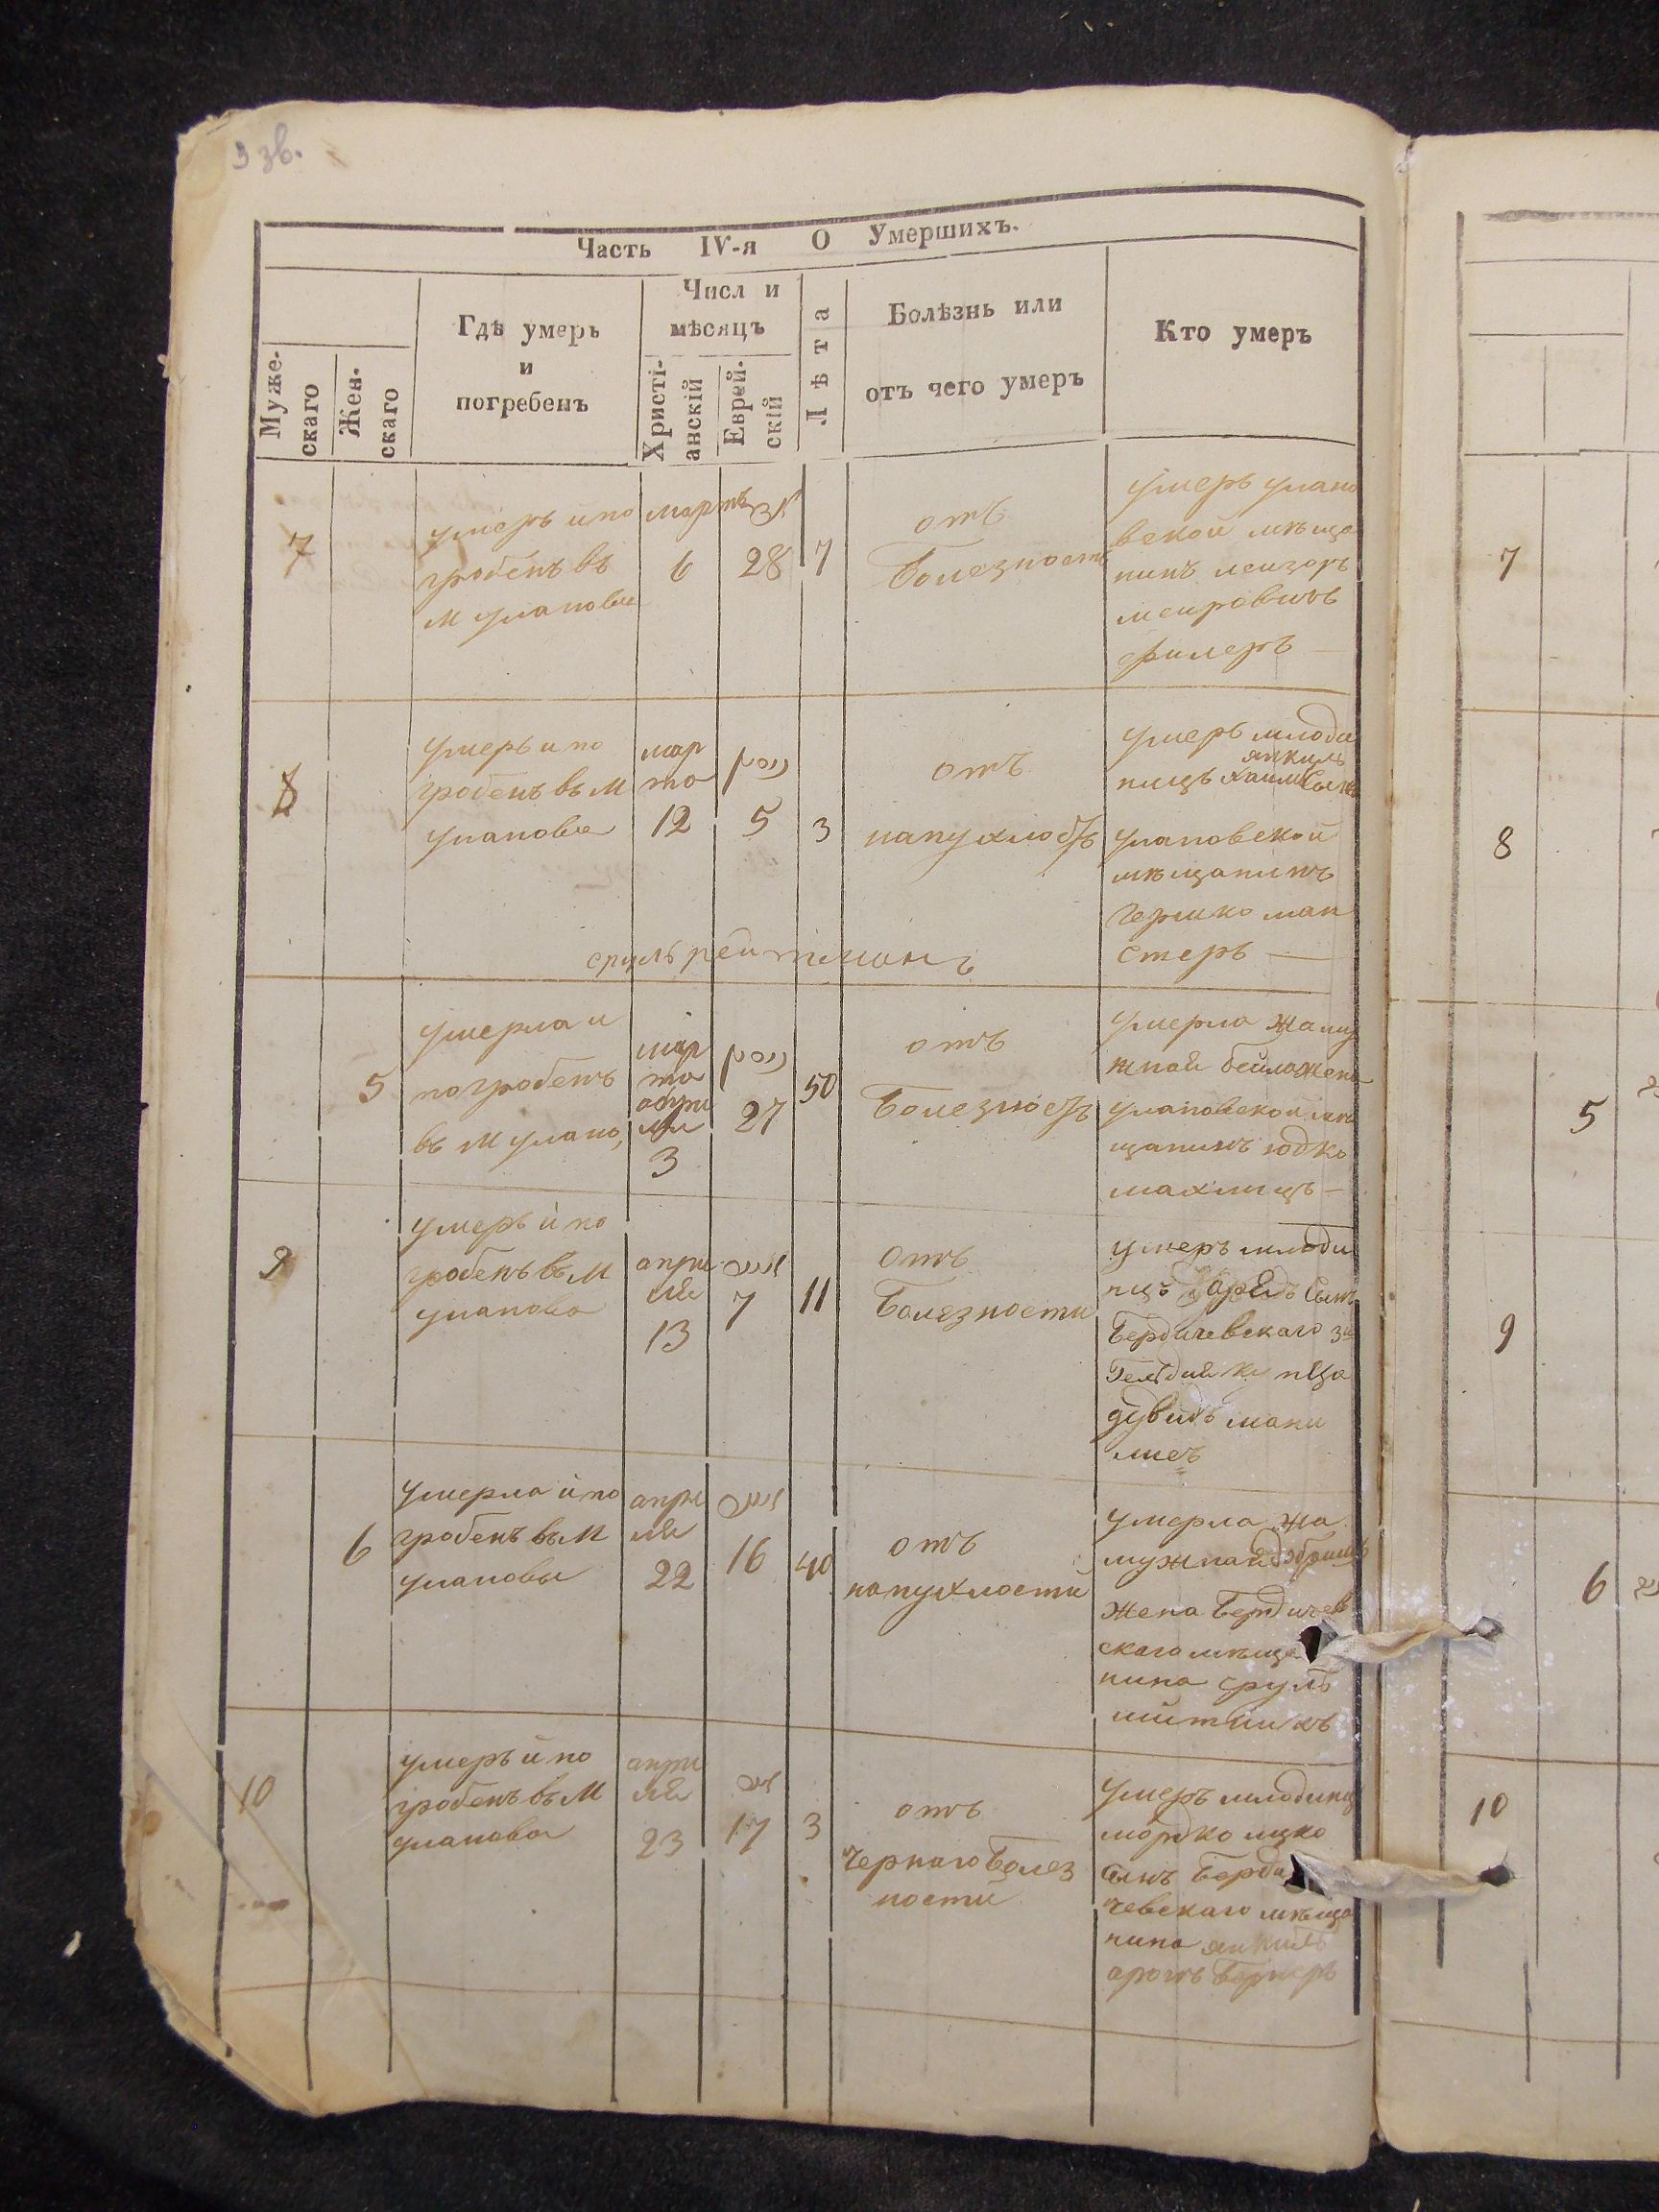 3 зв.
Часть IV-я О Умершихъ.
Муже-
скаго
Жен-
скаго
Гдѣ умеръ
и
погребенъ
Числ и
мѣсяцъ
Христі-
анскій
Еврей-
скій
Лѣта
Болѣзнь или
отъ чего умеръ
Кто умеръ
7
умеръ и по
гробенъ въ
м улановѣ
мартъ
6
אדר
28
7
отъ
Болезность
умеръ улано
вской мѣща
нинъ лейзоръ
меировичъ
8
умеръ и по
гробенъ въ м
уланове
мар
та
12
ניסן
5
3
отъ
напухлость
умеръ млоде
янкиль
нецъ хаимъ сынъ
улановской
мѣщанинъ
Гершко ман
стеръ
сруль рейтманъ
5
умерла и
погробенъ
въ м улано,
мар
та
апри
ля
3
ניסן
27
50
отъ
Болезность
умерла жаму
жная бейла жена
улановской мѣ
щанинъ юдко
9
умеръ и по
гробенъ въ м
уланова
апри
ля
13
אייר
7
11
отъ
Болезности
умеръ млоде
нцъ сынъ
Бердичевскаго
дувидъ
6
умерла и по
гробенъ въ м
улановы
апри
ля
22
אייר
16
40
отъ
напухлости
умерла жа
мужная добришъ
жена Бердичев
скаго мѣща
нина сруль
10
умеръ и по
гробенъ въ м
уланова
апри
ля
23
אייר
17
3
отъ
Чернаго Болез
ности
умеръ млоденц
мордко ицко
сынъ Берди
чевскаго мѣща
нина янкиль
аронъ
7
8
5
9
6
10